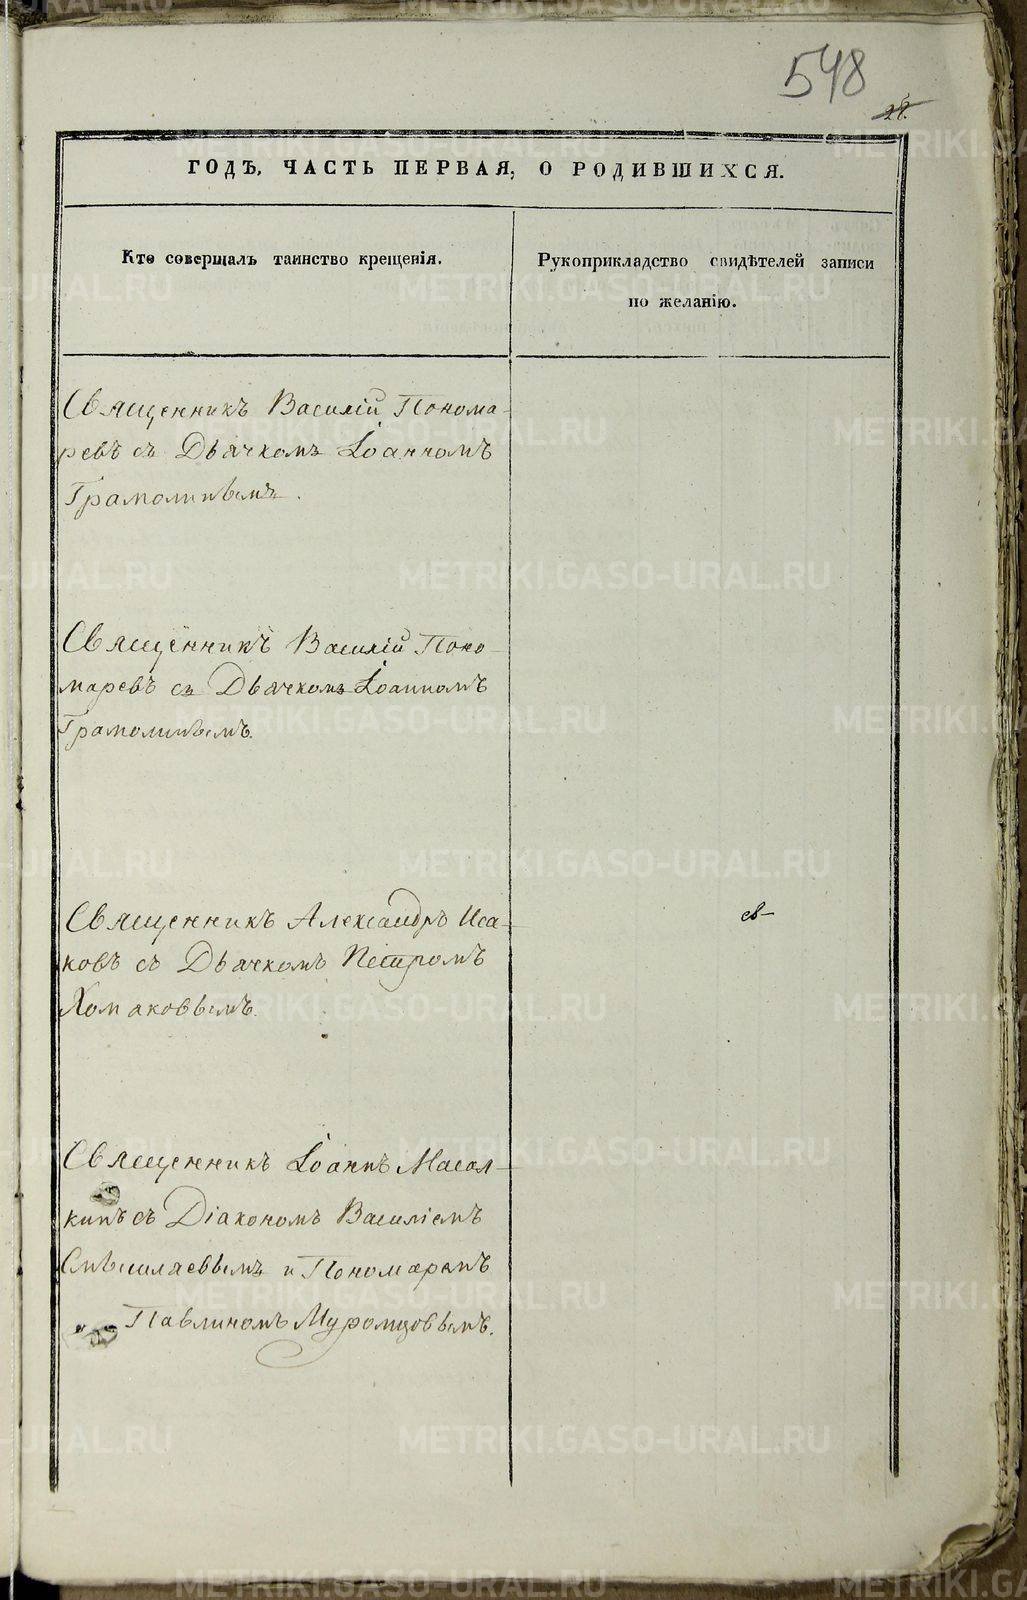 548
ГОДЪ, ЧАСТЬ ПЕРВАЯ, О РОДИВШИХСЯ.
Кто совершалъ таинство крещенія.
Рукоприкладство свидѣтелей записи
по желанію.
Священникъ Василій Понома-
ревъ съ Дьячкомъ Іоанномъ
Грамолинымъ.
Священникъ Василій Поно-
маревъ съ Дьячкомъ Іоанномъ
Грамолинымъ.
Священникъ Александръ Иса-
ковъ съ Дьячкомъ Петромъ
Хомаковымъ.
Священникъ Іоаннъ Масал-
кинъ съ Діакономъ Василіемъ
Смышляевымъ и Пономаремъ
Павлиномъ Муромцовымъ.
METRIKI.GASO-URAL.RU